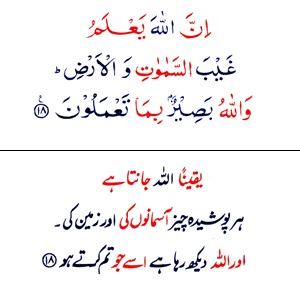 اِنَّ اللّٰهَ يَعْلَمُ
غَيْبَ السَّمٰوٰتِ وَ الْاَرْضِ ؕ
وَاللّٰهُ بَصِيْرٌۢ بِمَا تَعْمَلُوْنَ ﴿۱۸﴾
یقیناً اللہ جانتا ہے
ہر پوشیدہ چیز آسمانوں کی اور زمین کی۔
اور اللہ دیکھ رہا ہے اسے جو تم کرتے ہو ﴿۱۸﴾